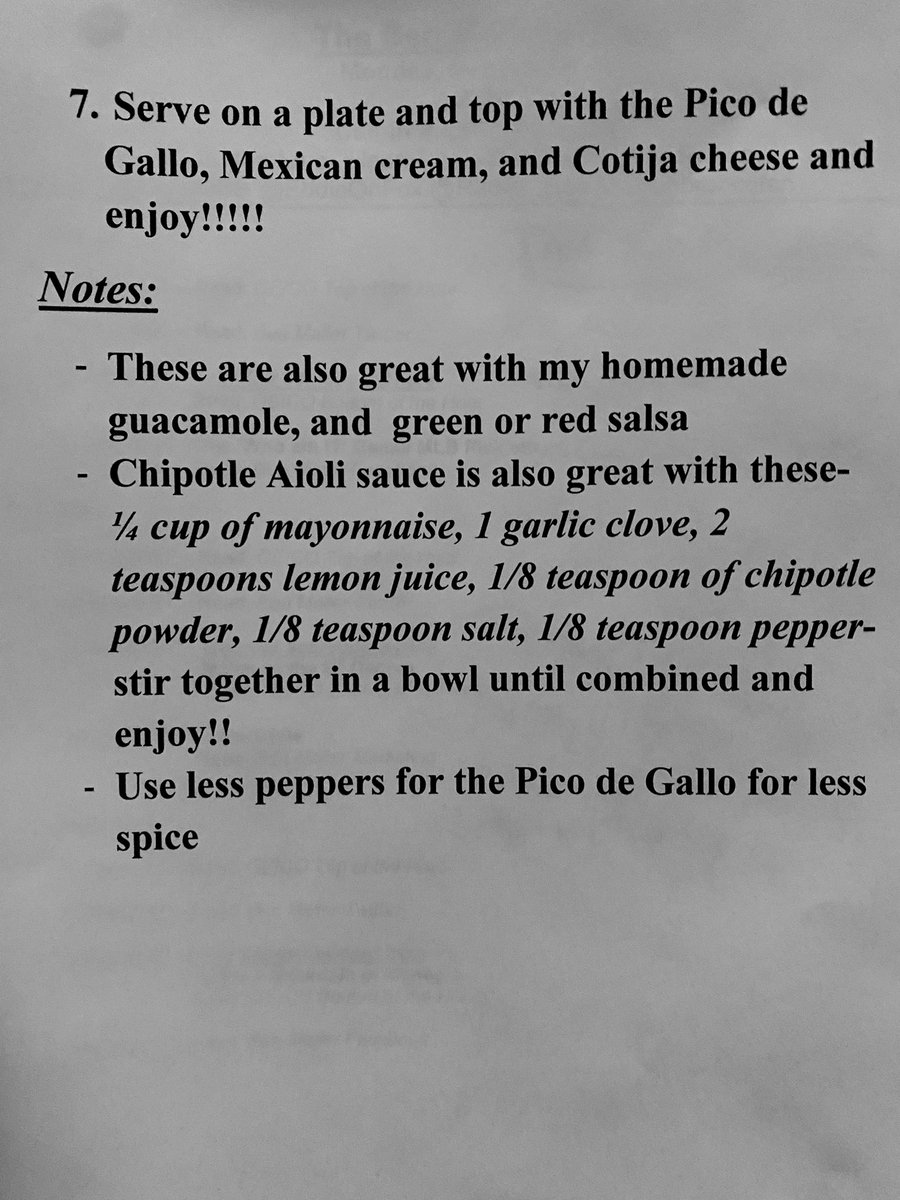 7. Serve on a plate and top with the Pico de
Gallo, Mexican cream, and Cotija cheese and
enjoy!!!!!
Notes:
- These are also great with my homemade
guacamole, and  green or red salsa
- Chipotle Aioli sauce is also great with these-
¼ cup of mayonnaise, 1 garlic clove, 2
teaspoons lemon juice, 1/8 teaspoon of chipotle
powder, 1/8 teaspoon salt, 1/8 teaspoon pepper-
stir together in a bowl until combined and
enjoy!!
- Use less peppers for the Pico de Gallo for less
spice